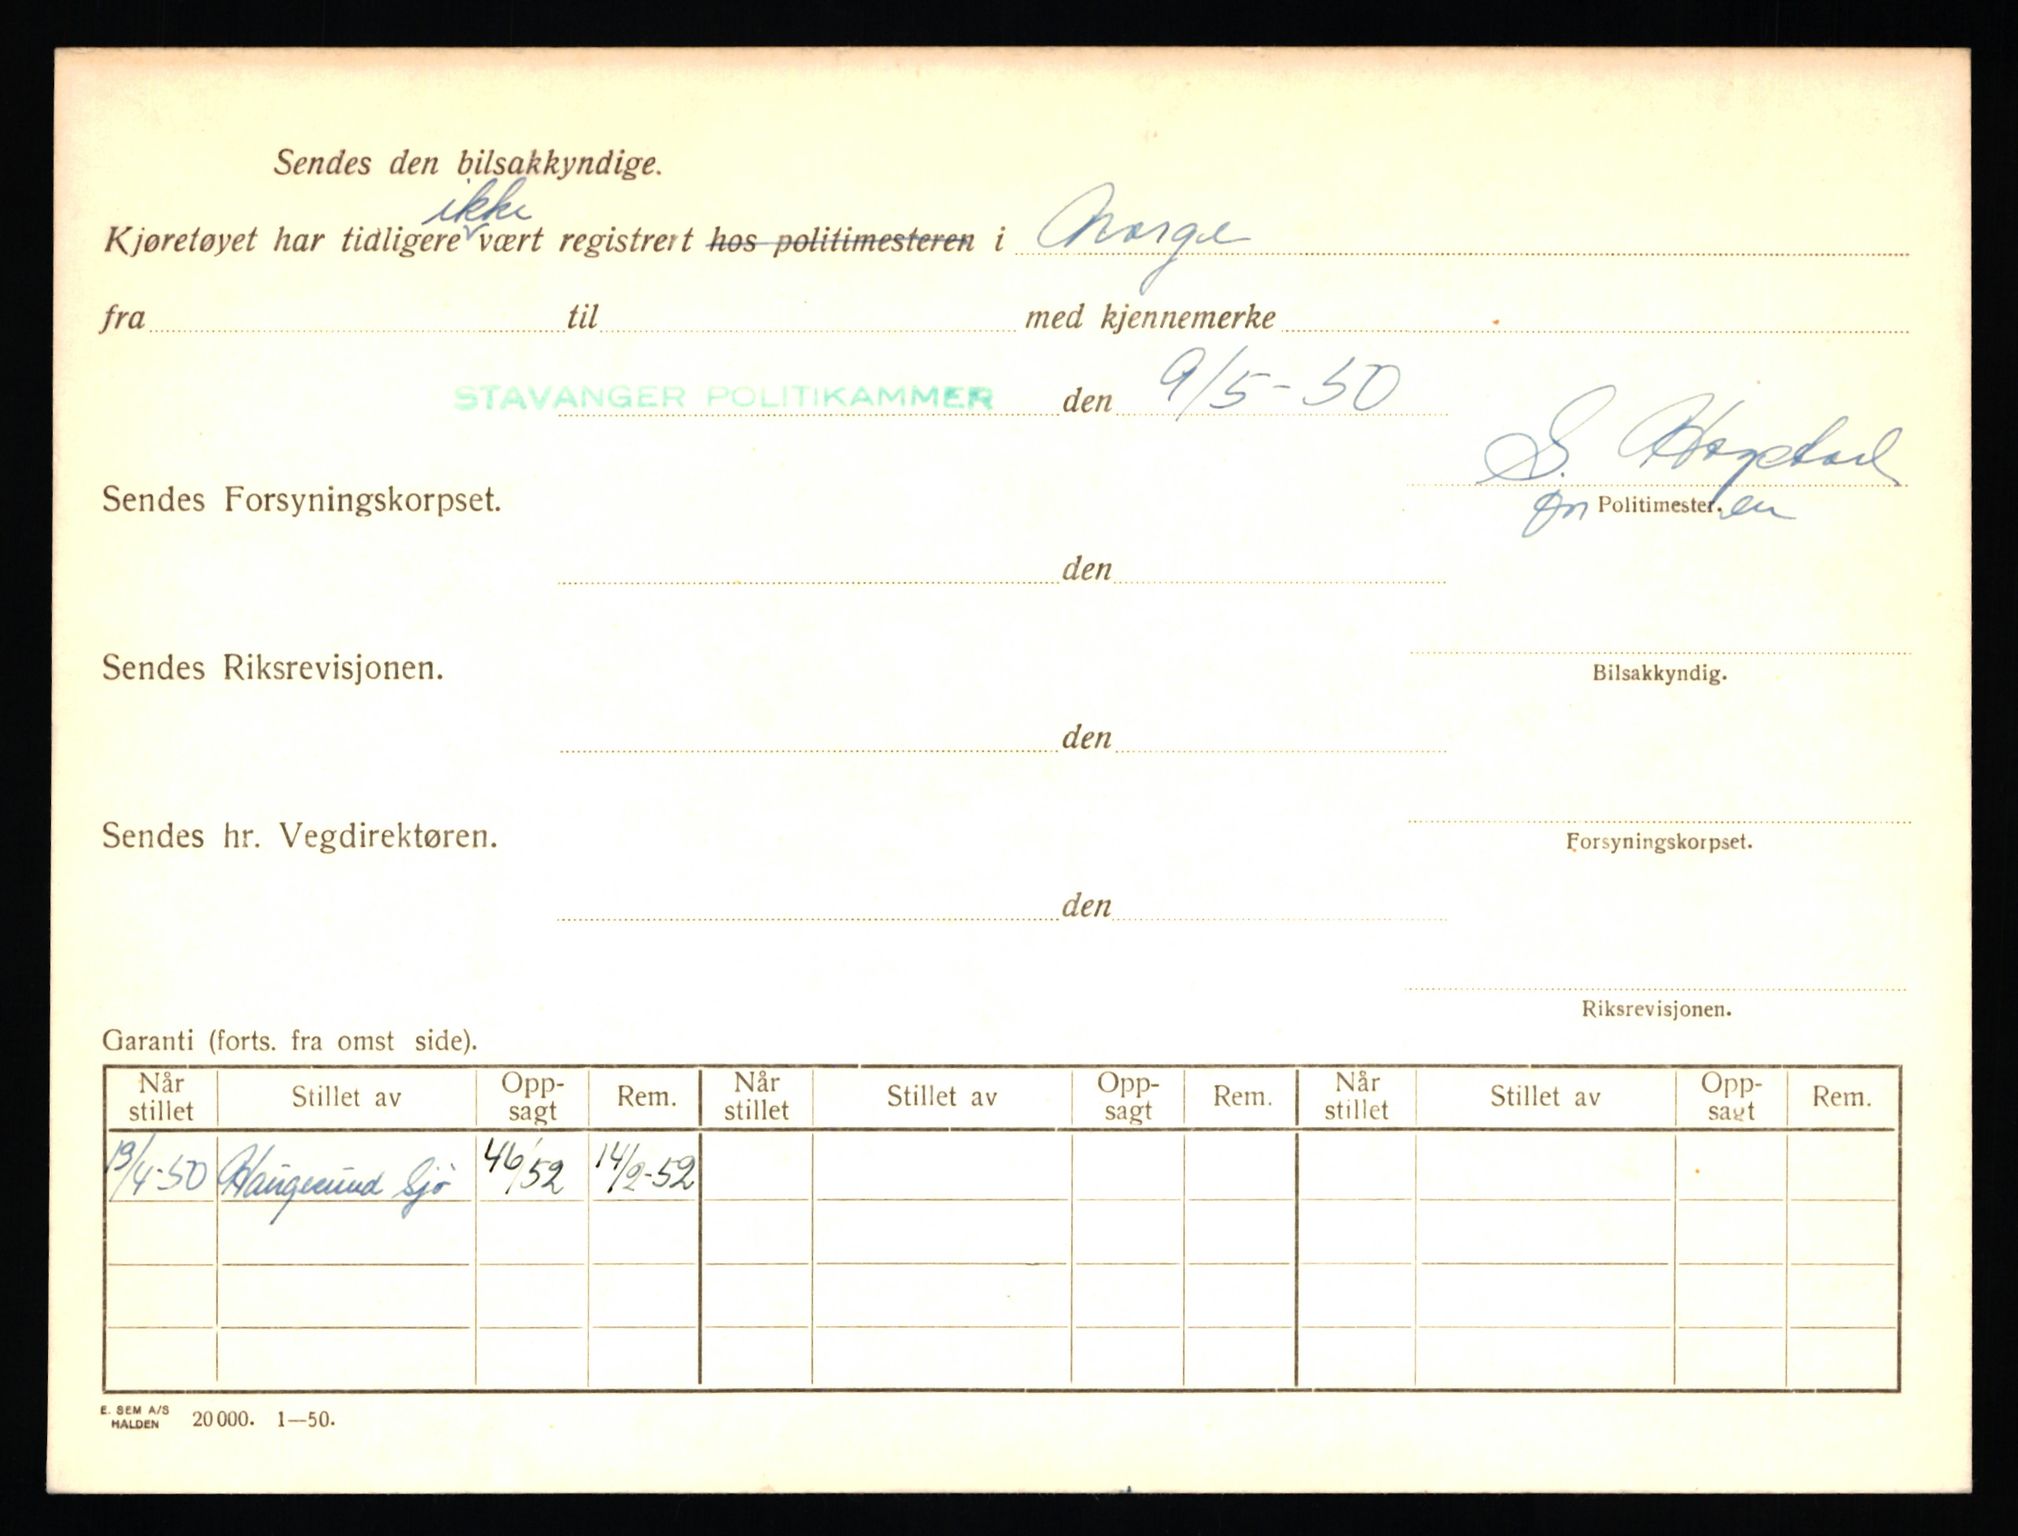 Sendes den bilsakkyndige.
ikke
Kjøretøyet har tidligere vært registrert hos politimesteren i Norge
fra til med kjennemerke
STAVANGER POLITIKAMMER den 9/5-50
S.
Sendes Forsyningskorpset.
Politimester.en
den
Sendes Riksrevisjonen.
Bilsakkyndig.
den
Sendes hr. Vegdirektøren.
Forsyningskorpset.
den
Riksrevisjonen.
Garanti (forts. fra omst side).
Når stillet Stillet av Opp-sagt Rem. Når stillet Stillet av Opp-sagt Rem. Når stillet Stillet av Opp-sagt Rem.
19/4-50 Haugesund Sjø 46/52 14/2-52
E. SEM A/S
HALDEN 20 000. 1—50.